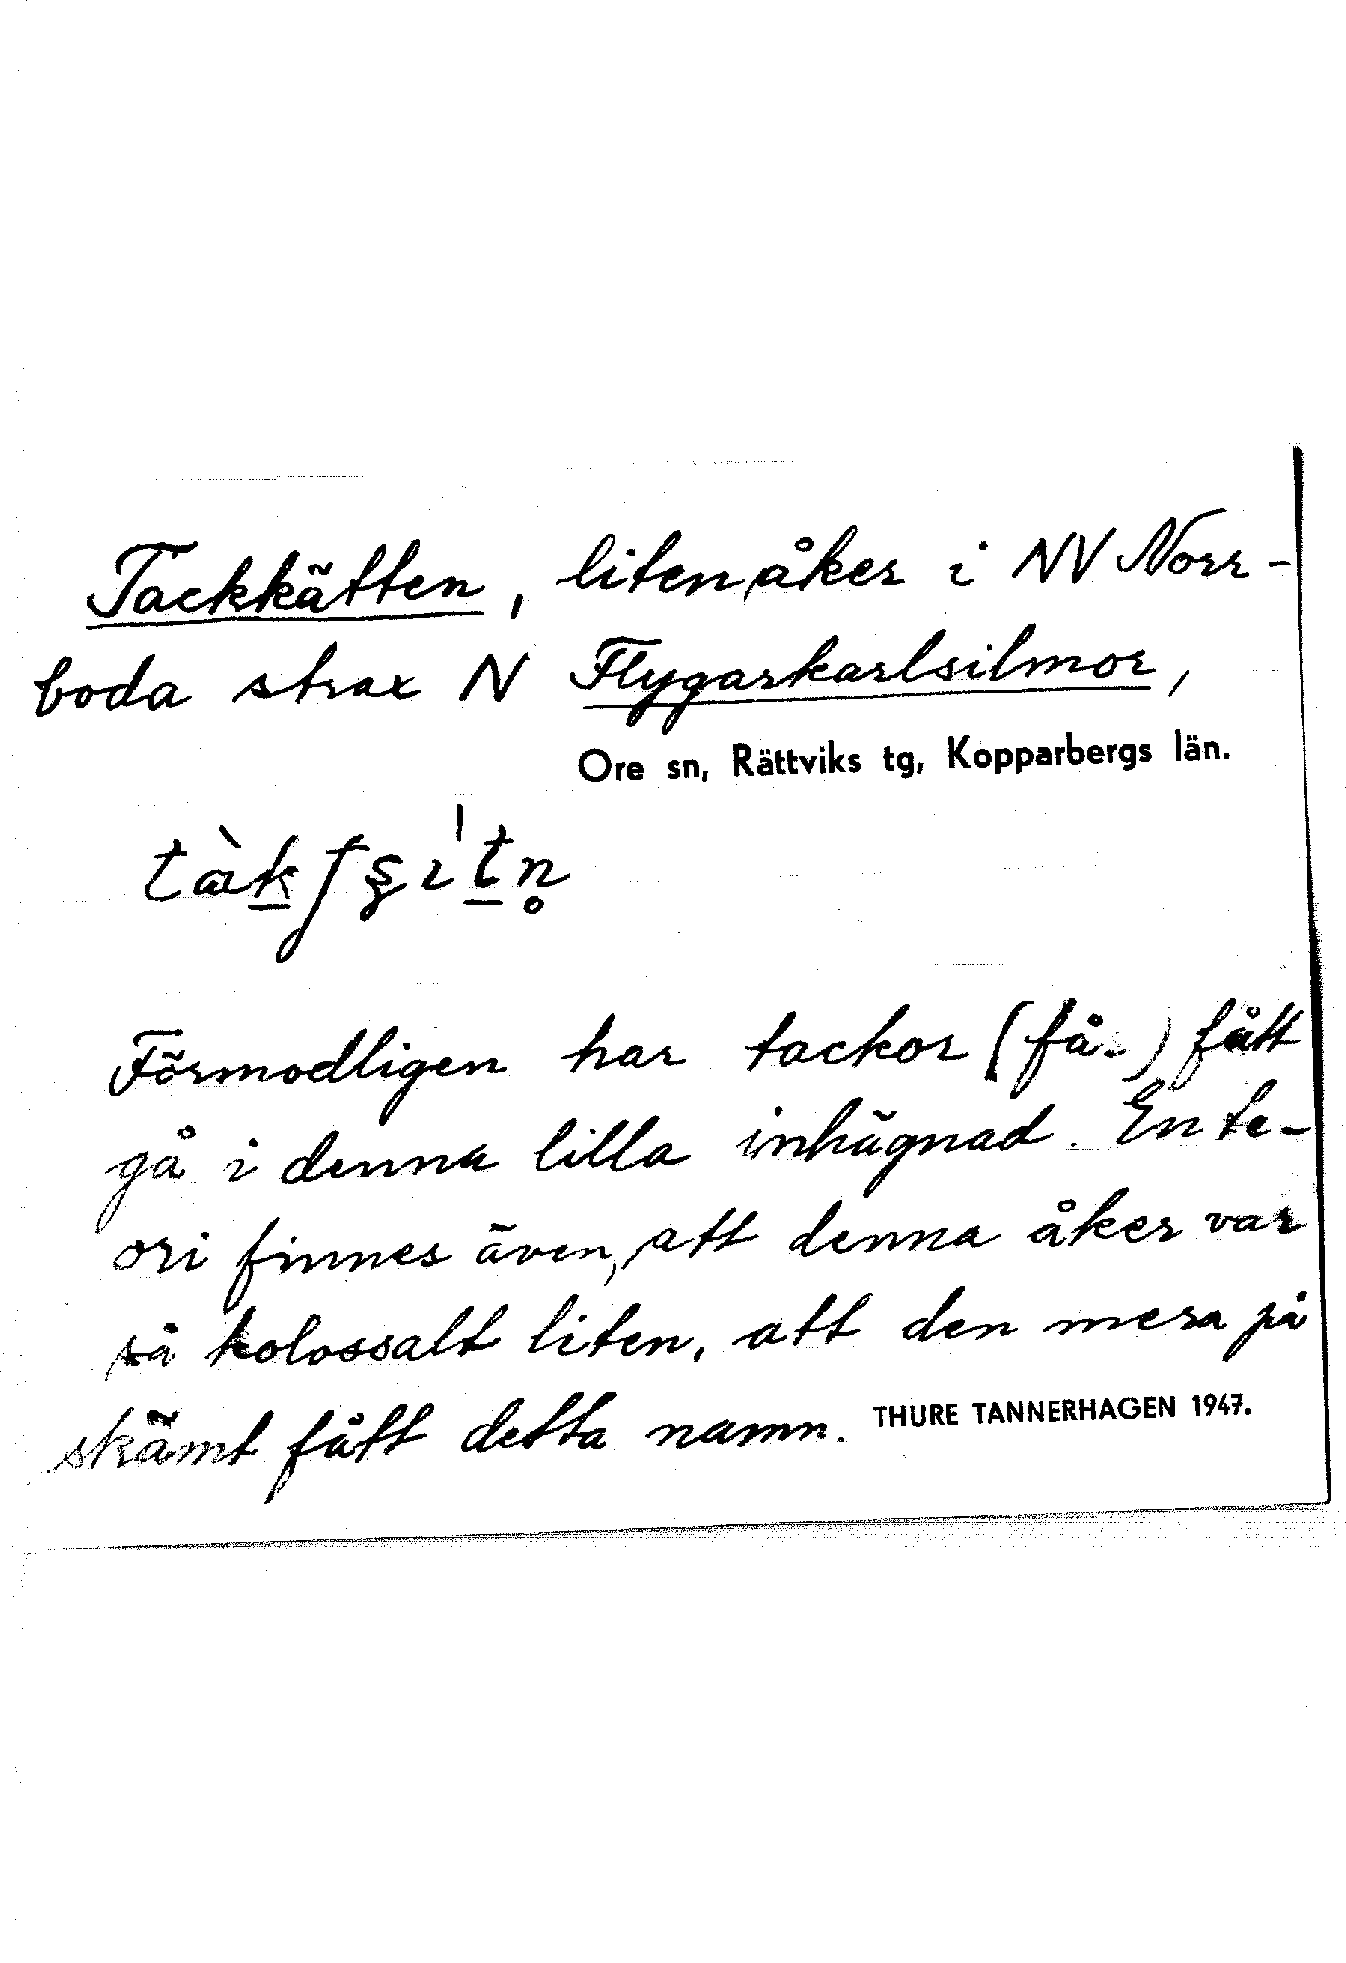 Tackkätten, liten åker i NV Norr-
boda strax N Flygarkarlsilmor,
Ore sn, Rättviks tg, Kopparbergs län.
Förmodligen har tackor (får) fått
gå i denna lilla inhägnad. En te-
ori finnes även, att denna åker var
så kolossalt liten, att den mera på
skämt fått detta namn. THURE TANNERHAGEN 1947.